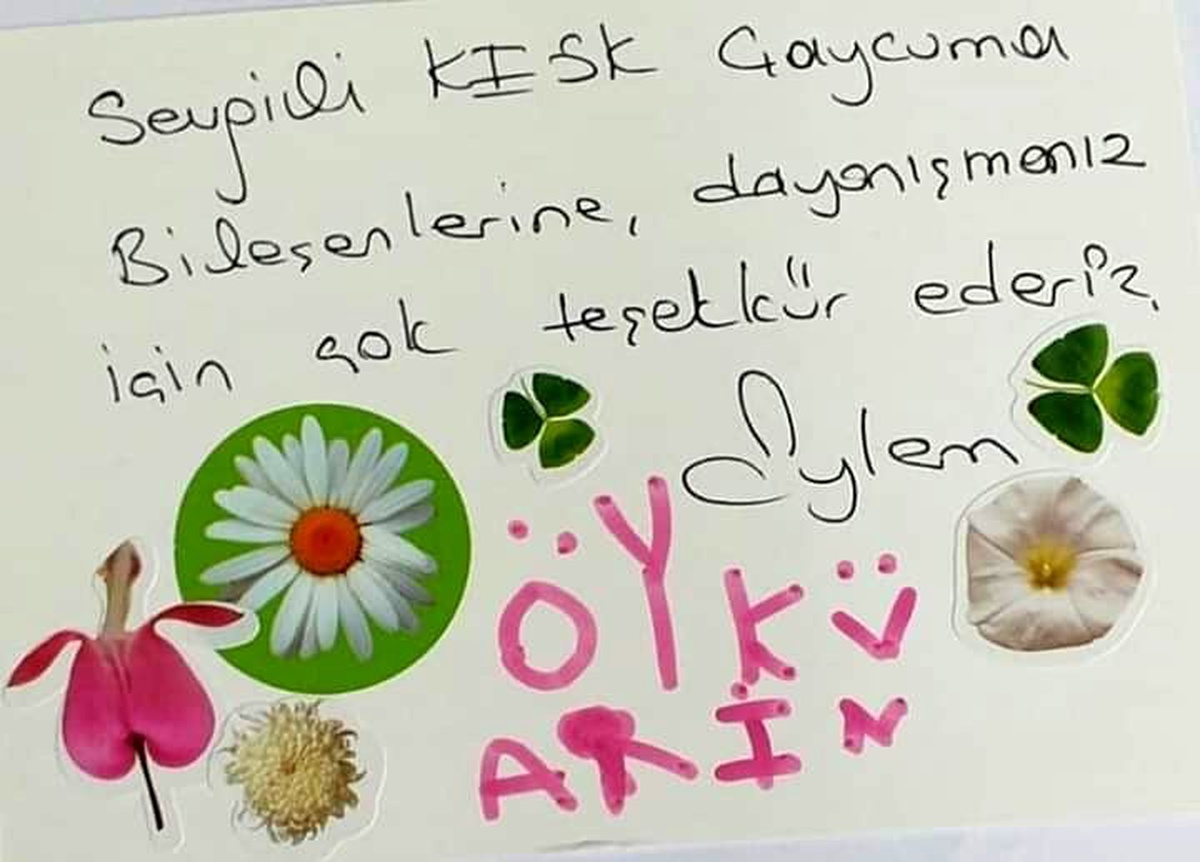 Sevgili KISK Çaycuma
Bileşenlerine, dayanışmanız
için çok teşekkür ederiz.
Eylem
ÖYKÜ
ARİN